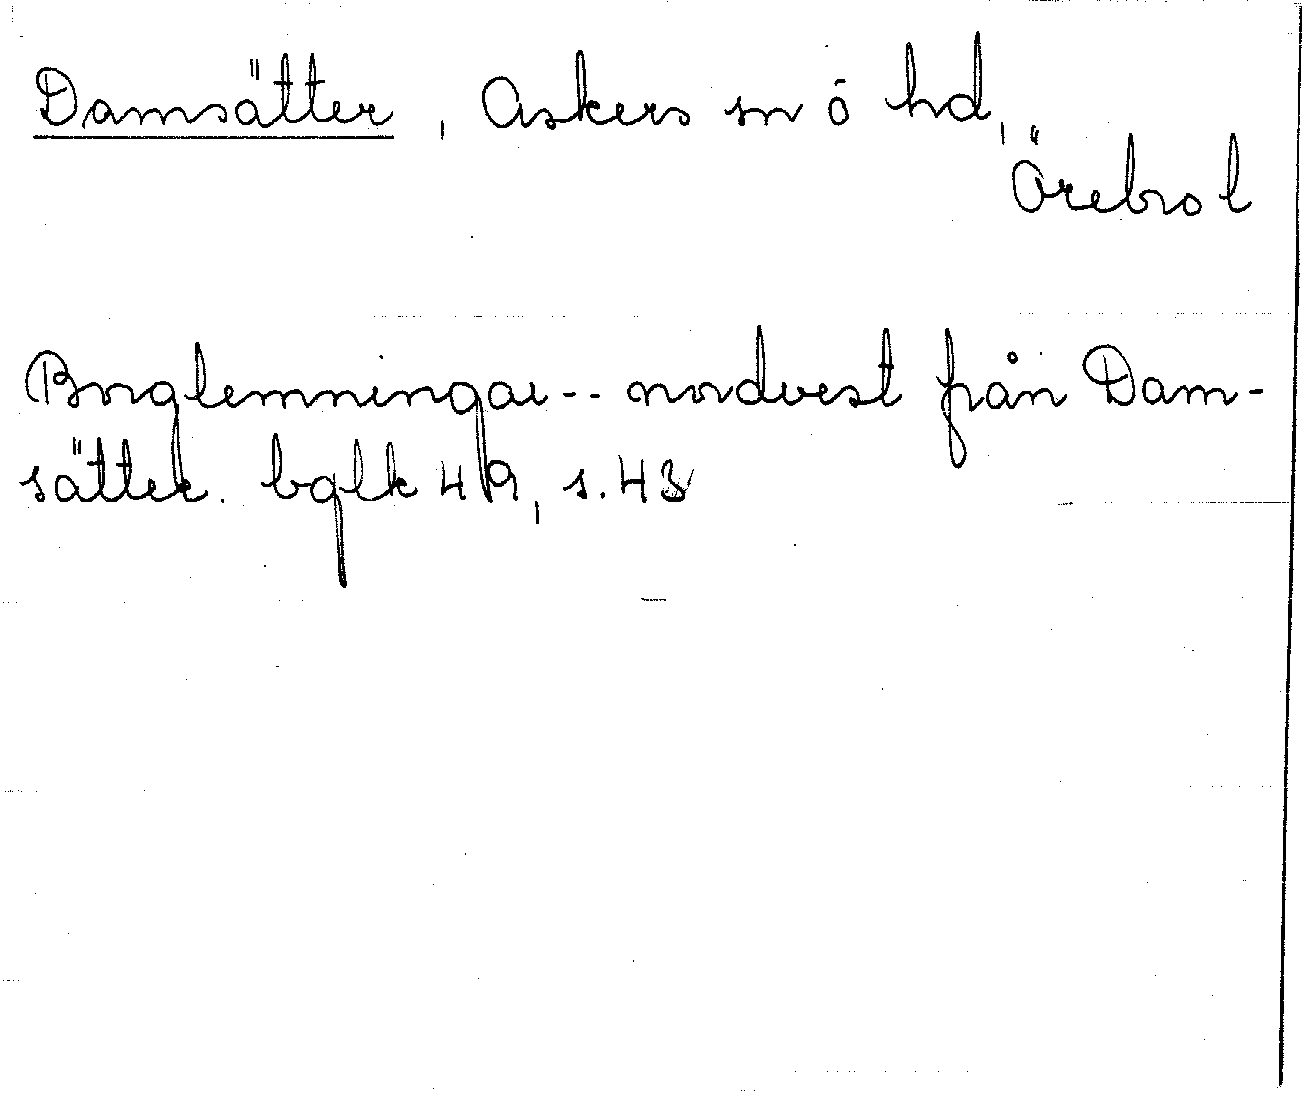 Damsätter, Askers sn ö hd,
Örebro l
Borglemningar -- nordvest från Dam-
sätter. bglk 49, s. 43